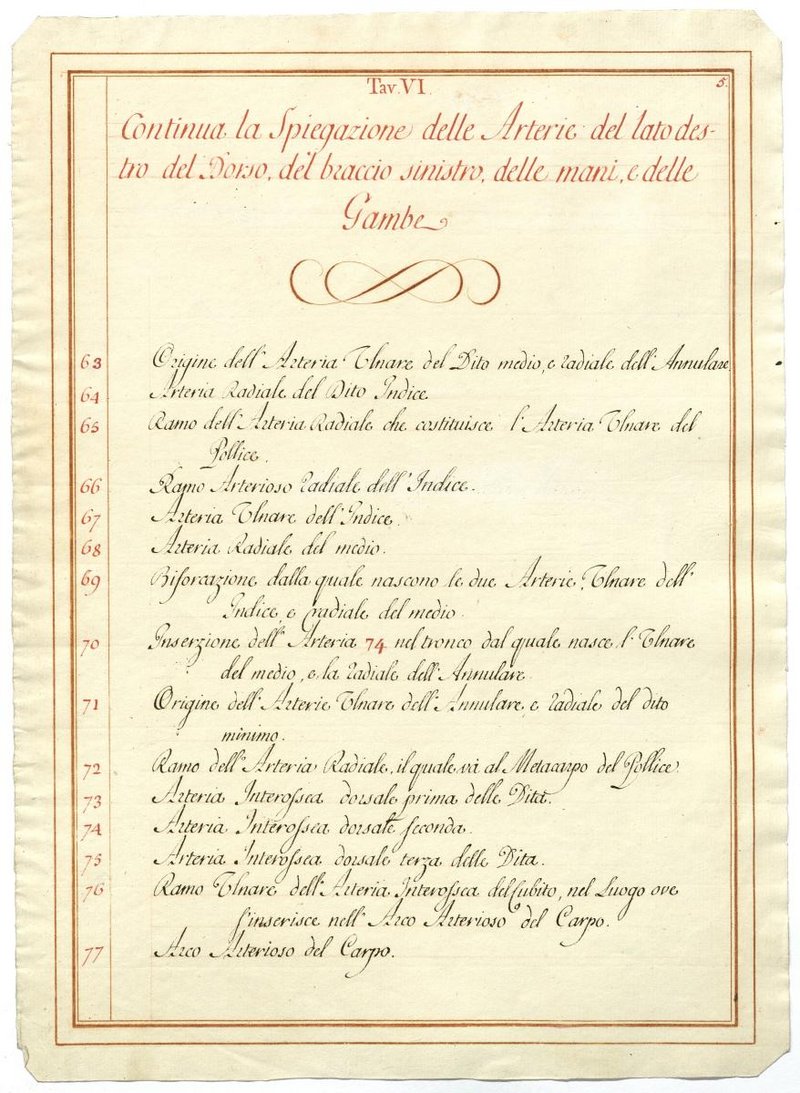 Tav. VI.
5.
Continua la Spiegazione delle Arterie del lato des-
tro del Dorso, del braccio sinistro, delle mani, e delle
Gambe
63 Origine dell' Arteria Ulnare del Dito medio, e radiale dell' Annulare.
64 Arteria Radiale del Dito Indice
65 Ramo dell' Arteria Radiale che costituisce l' Arteria Ulnare del
Pollice.
66 Ramo Arterioso radiale dell' Indice.
67 Arteria Ulnare dell' Indice.
68 Arteria Radiale del medio.
69 Biforcazione dalla quale nascono le due Arterie, Ulnare dell'
Indice, e radiale del medio.
70 Inserzione dell' Arteria 74 nel tronco dal quale nasce l' Ulnare
del medio, e la radiale dell' Annulare.
71 Origine dell' Arterie Ulnare dell' Annulare, e radiale del dito
minimo.
72 Ramo dell' Arteria Radiale, il quale và al Metacarpo del Pollice.
73 Arteria Interossea dorsale prima delle Dita.
74 Arteria Interossea dorsale seconda.
75 Arteria Interossea dorsale terza delle Dita.
76 Ramo Ulnare dell' Arteria Interossea del Cubito, nel Luogo ove
s'inserisce nell' Arco Arterioso del Carpo.
77 Arco Arterioso del Carpo.